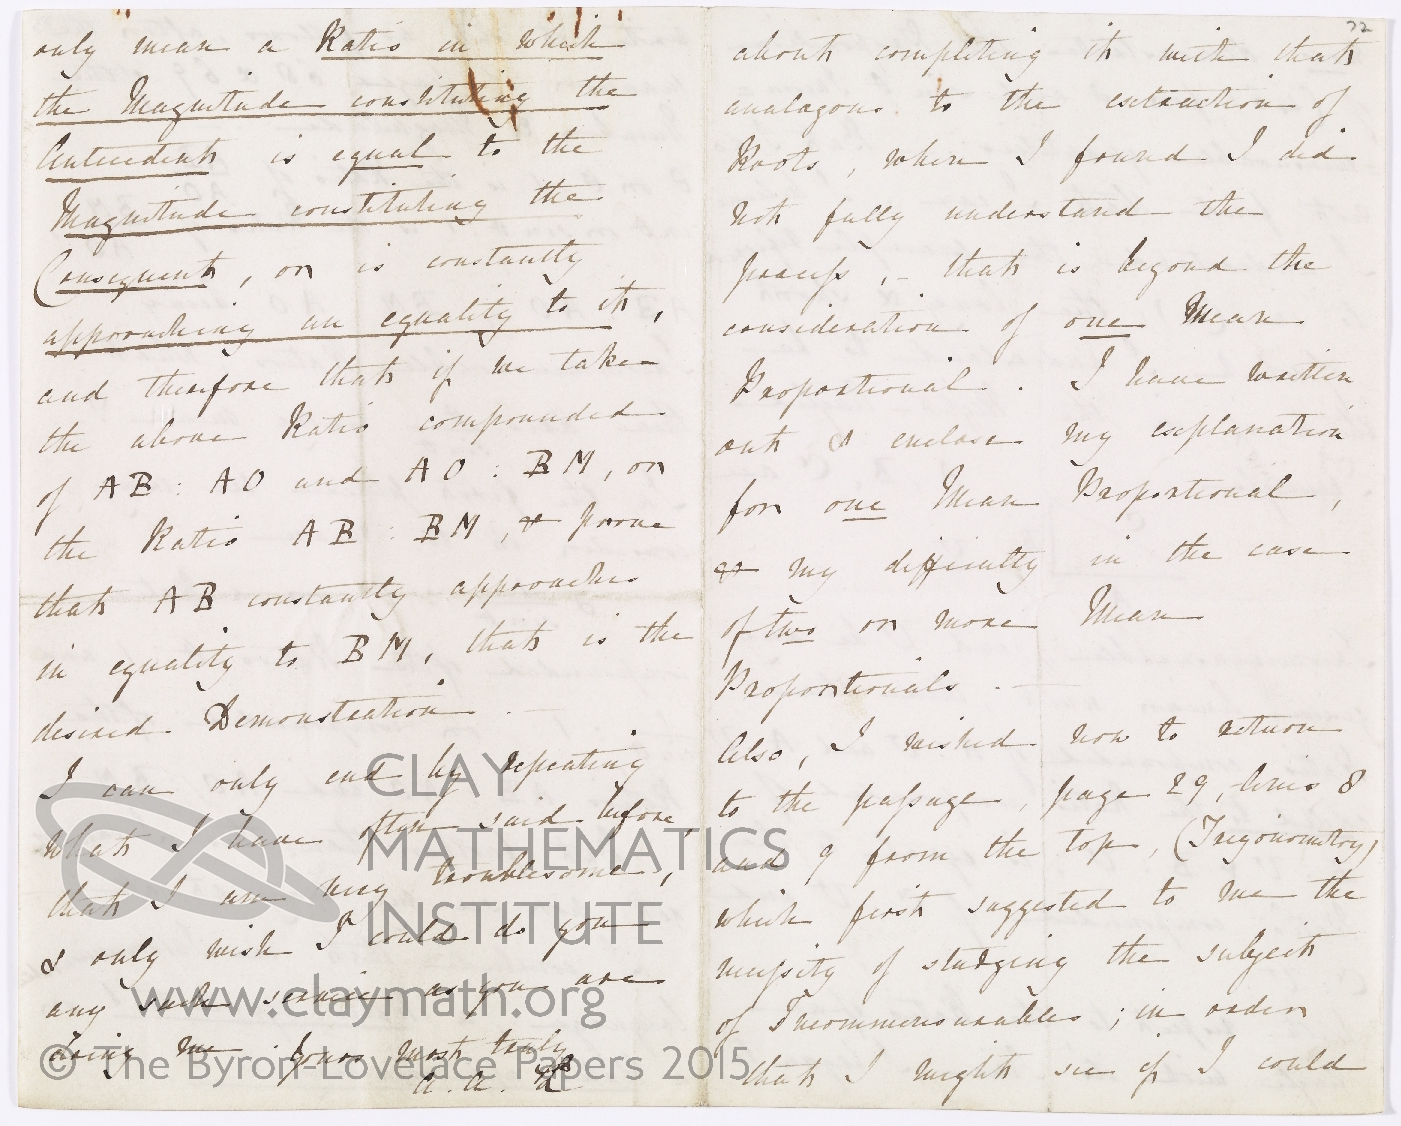 only mean a Ratio in which
the Magnitude constituting the
Antecedent is equal to the
Magnitude constituting the
Consequent, or is constantly
approaching an equality to it,
and therefore that if we take
the above Ratio compounded
of AB : AO and AO : BM, or
the Ratio AB : BM, & prove
that AB constantly approaches
in equality to BM, that is the
desired Demonstration. —
I can only end by repeating
what I have often said before,
that I am very troublesome,
& only wish I could do you
any such service as you are
doing me. Yours most truly
A. A. L
72
about completing it with that
analogous to the extraction of
Roots, when I found I did
not fully understand the
process, — that is beyond the
consideration of one Mean
Proportional. I have written
out & enclose my explanation
for one Mean Proportional,
& my difficulty in the case
of two or more Mean
Proportionals. —
Also, I wished now to return
to the passage, page 29, lines 8
and 9 from the top, (Trigonometry)
which first suggested to me the
necessity of studying the subject
of Incommensurables; in order
that I might see if I could
CLAY
MATHEMATICS
INSTITUTE
www.claymath.org
© The Byron-Lovelace Papers 2015